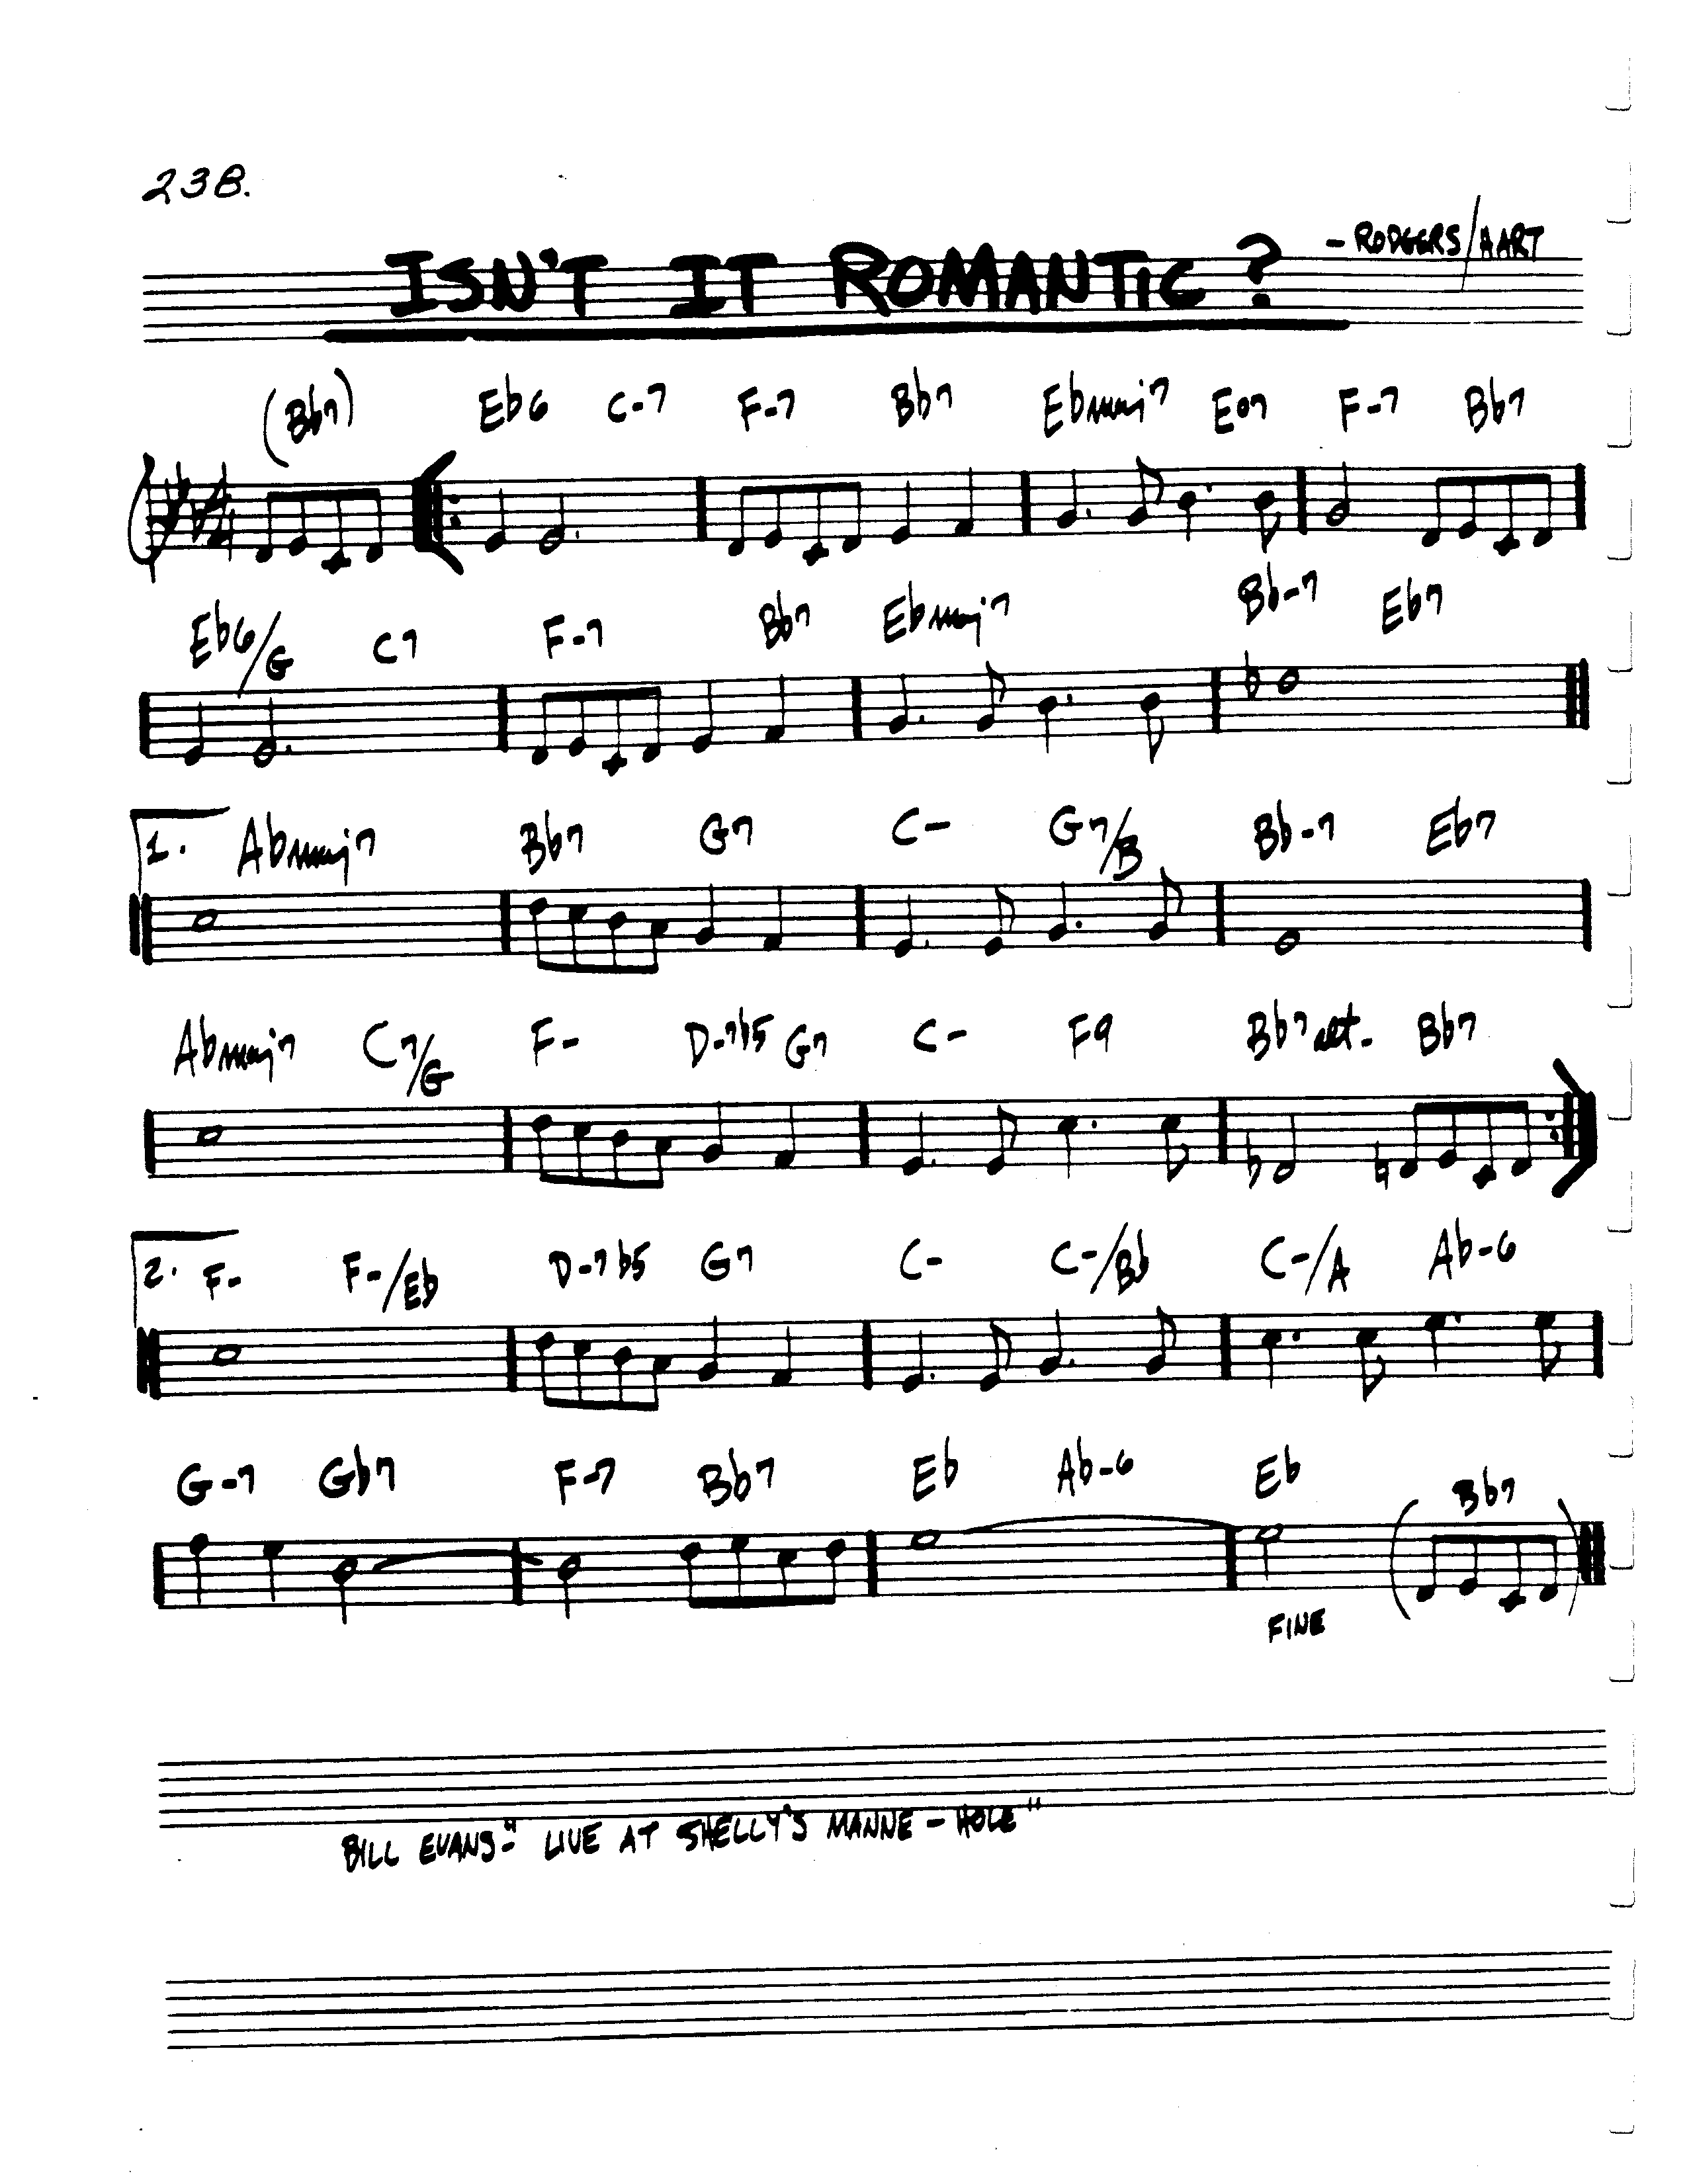 238.
ISN'T IT ROMANTIC?
- RODGERS/HART
(Bb7) Eb6 C-7 F-7 Bb7 Ebmaj7 Eo7 F-7 Bb7
Eb6/G C7 F-7 Bb7 Ebmaj7 Bb-7 Eb7
1. Abmaj7 Bb7 G7 C- G7/B Bb-7 Eb7
Abmaj7 C7/G F- D-7b5 G7 C- F9 Bb7alt. Bb7
2. F- F-/Eb D-7b5 G7 C- C-/Bb C-/A Ab-6
G-7 Gb7 F-7 Bb7 Eb Ab-6 Eb (Bb7)
FINE
BILL EVANS-"LIVE AT SHELLY'S MANNE-HOLE"